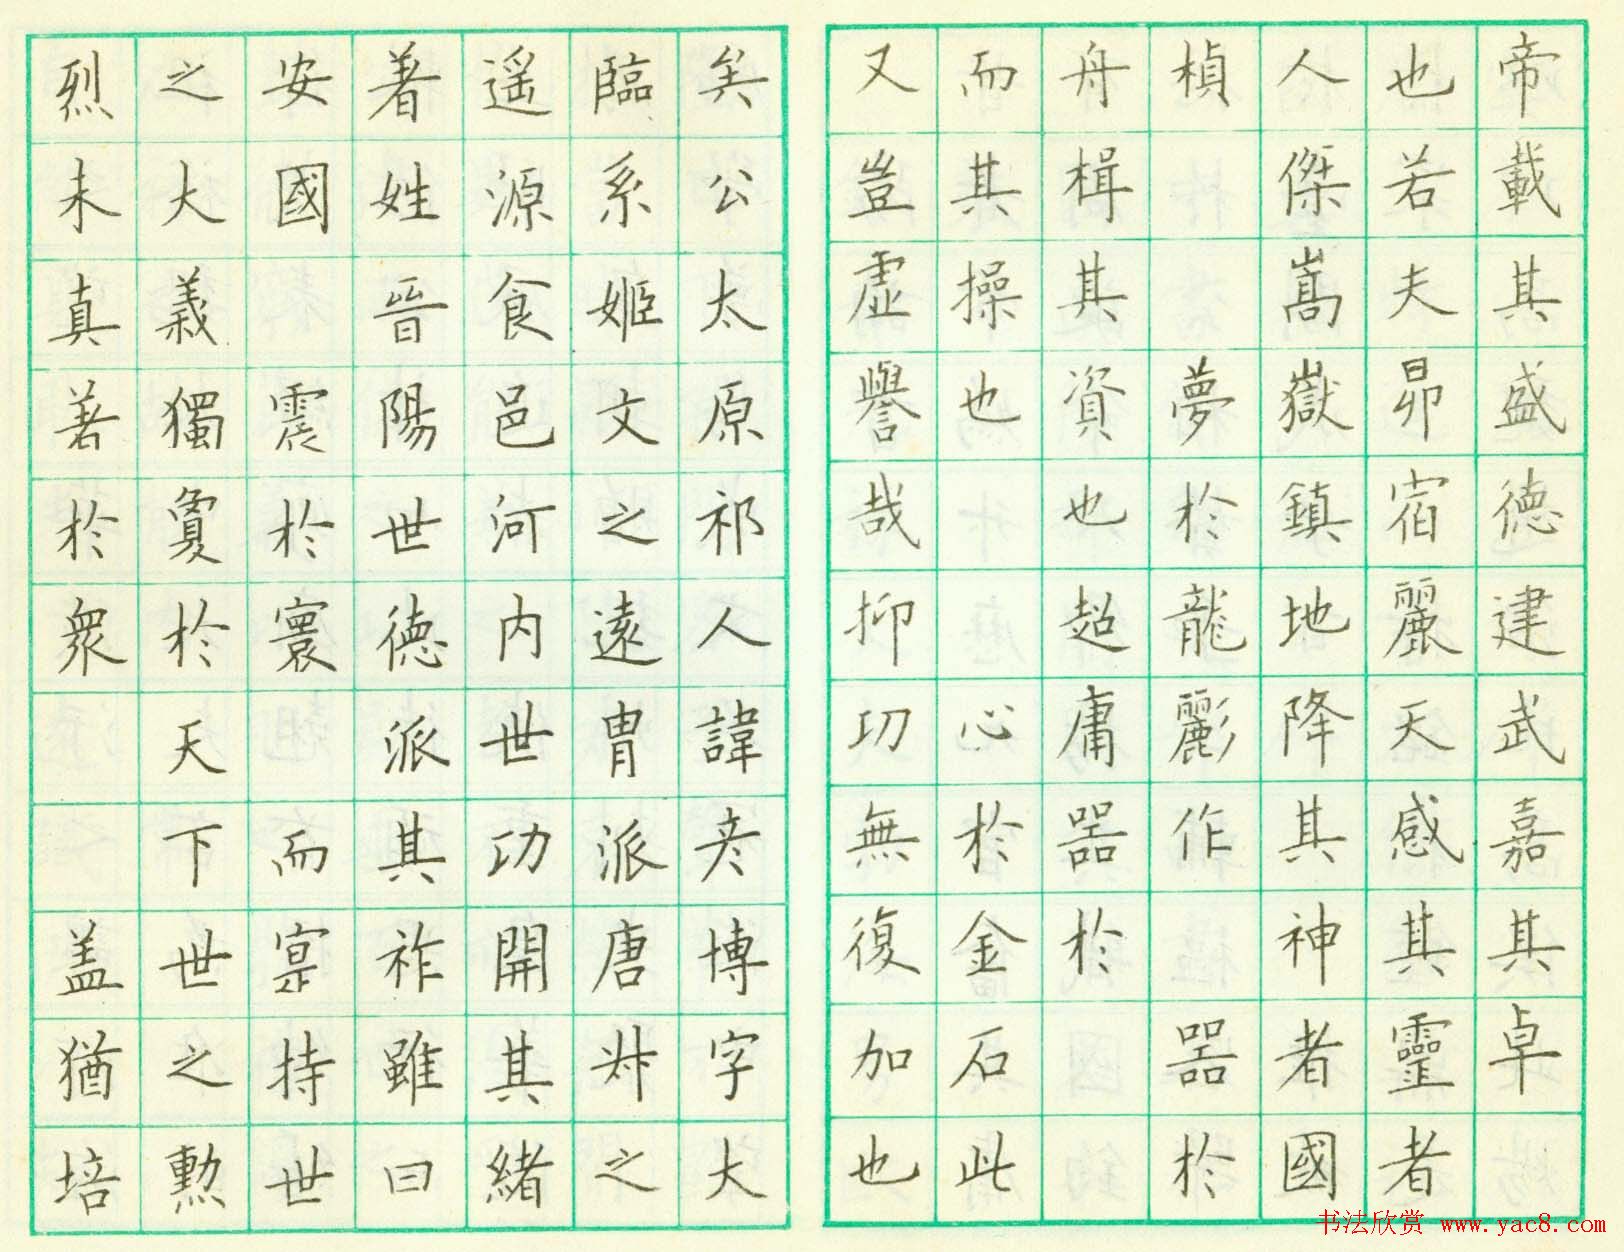 帝載其盛德建武嘉其卓
也若夫昴宿麗天感其靈者
人傑嵩嶽鎮地降其神者國
楨 夢於龍彲作 器於
舟楫其資也超庸器於
而其操也 心於金石此
又豈虛譽哉抑功無復加也
矣公太原祁人諱彦博字大
臨系姬文之遠胄派唐叔之
遥源食邑河内世功開其緒
著姓晉陽世德派其祚雖曰
安國 震於寰 而寔持世
之大義獨敻於天下世之勲
烈未真著於衆 盖猶培
书法欣赏 www.yac8.com